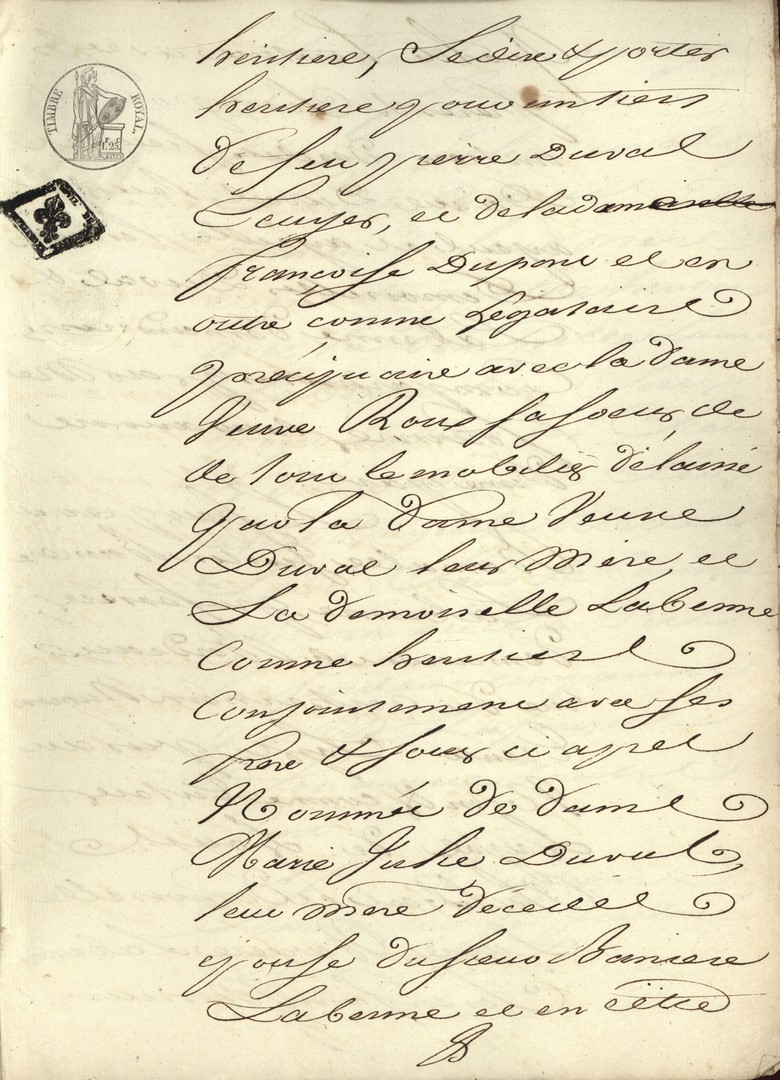 TIMBRE ROYAL
1F.25c
heritiere, Se dire & porter
heritiere pour un tiers
de feu pierre Duval
Ecuyer, et de la damoiselle
Françoise Dupont et en
outre comme Légataire
préciputaire avec la dame
Veuve Roux sa soeur, de
de tout le mobilier délaissé
par la dame Veuve
Duval leur Mère, et
La demoiselle Laberme
Comme heritiere
Conjointement avec ses
frere & soeur ci apres
Nommés de dame
Marie Julie Duval,
leur mere décédée
epouse du sieur
Laberme et en cette